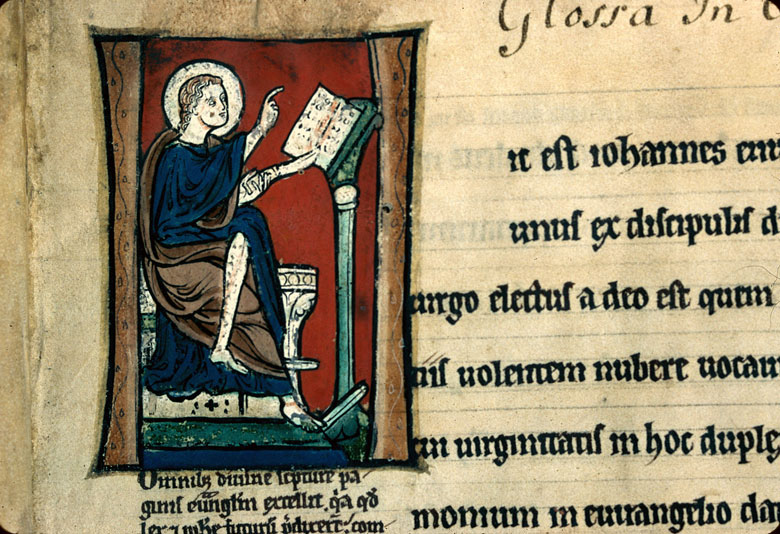 Glossa In
ic est iohannes euu
unus ex discipulis d
uirgo electus a deo est quem
tiis uolentem nubere uocaui
uirginitatis in hoc duplex
monium in euuangelio da
Omnib; diuine scpture pa
ginis euuglm excellit. qa qd